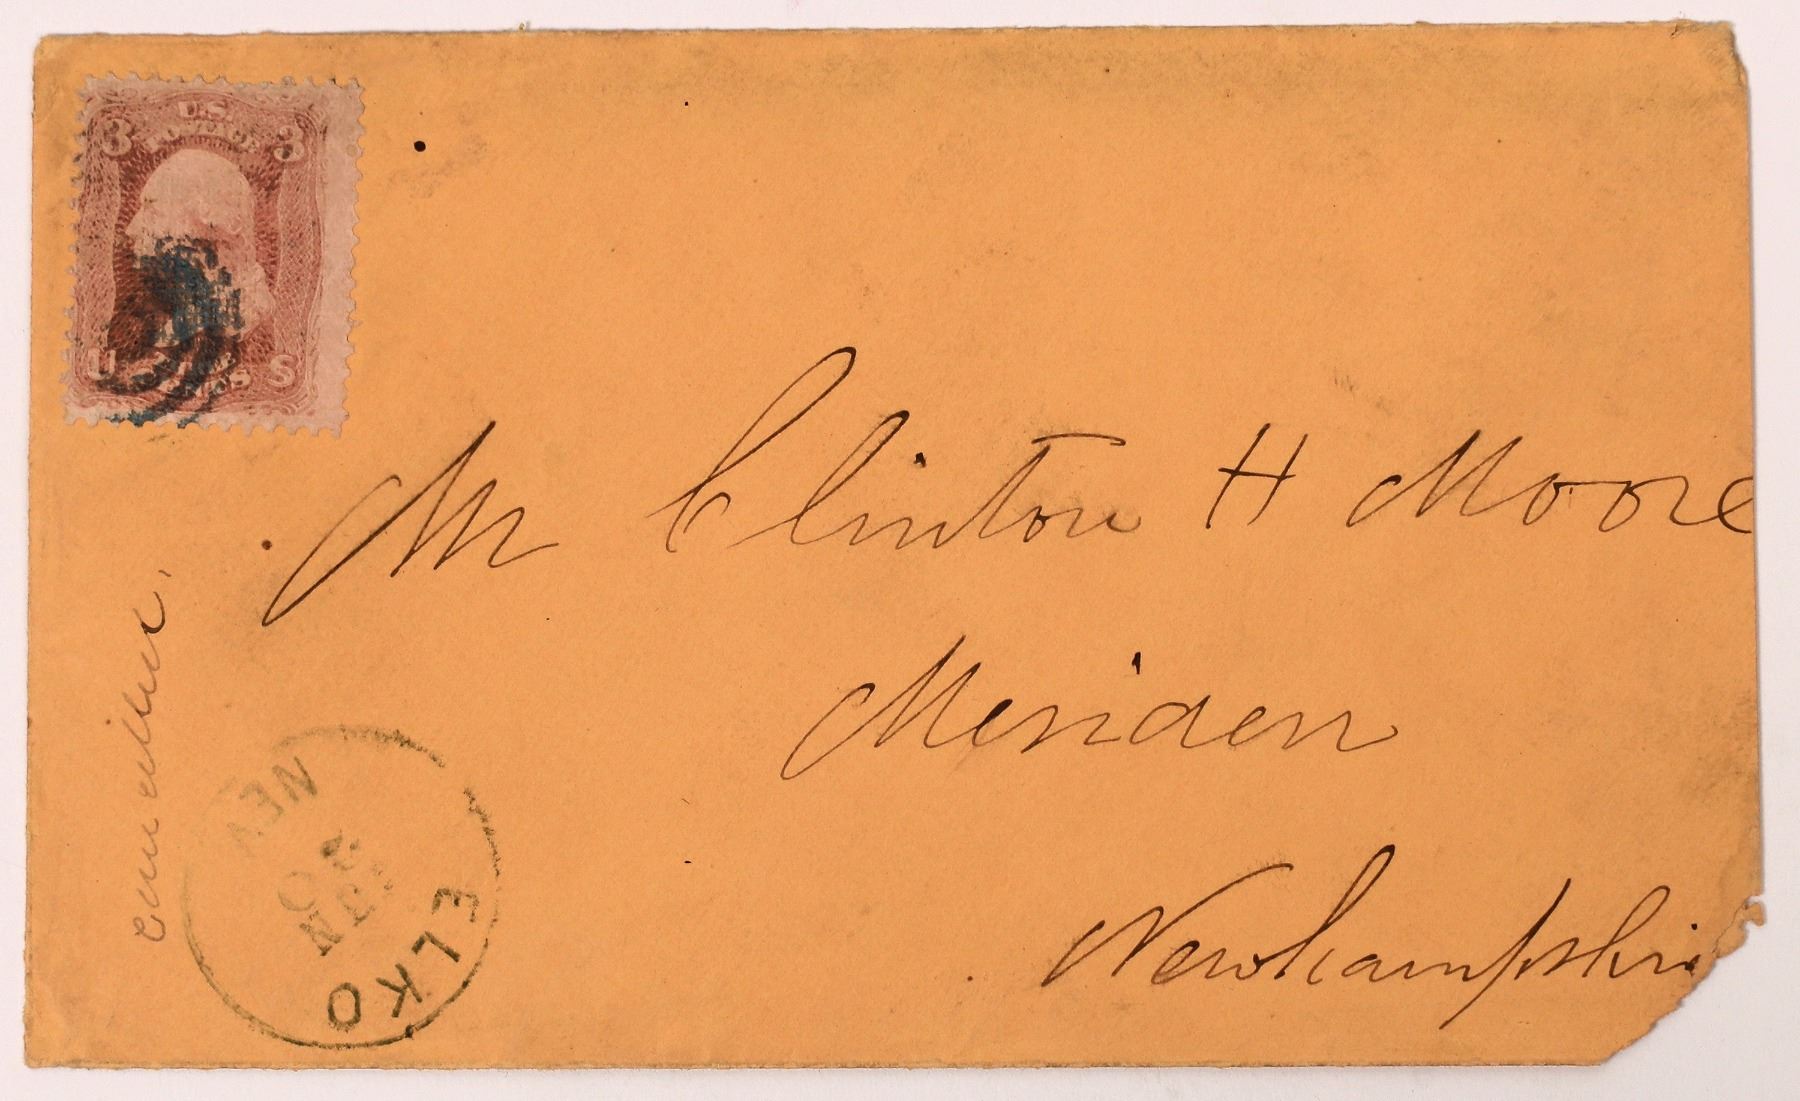 U.S.
POSTAGE
3 3
U S
Mr Clinton H Moore
Meriden
Newhampshir
ELKO NEV
JN
20